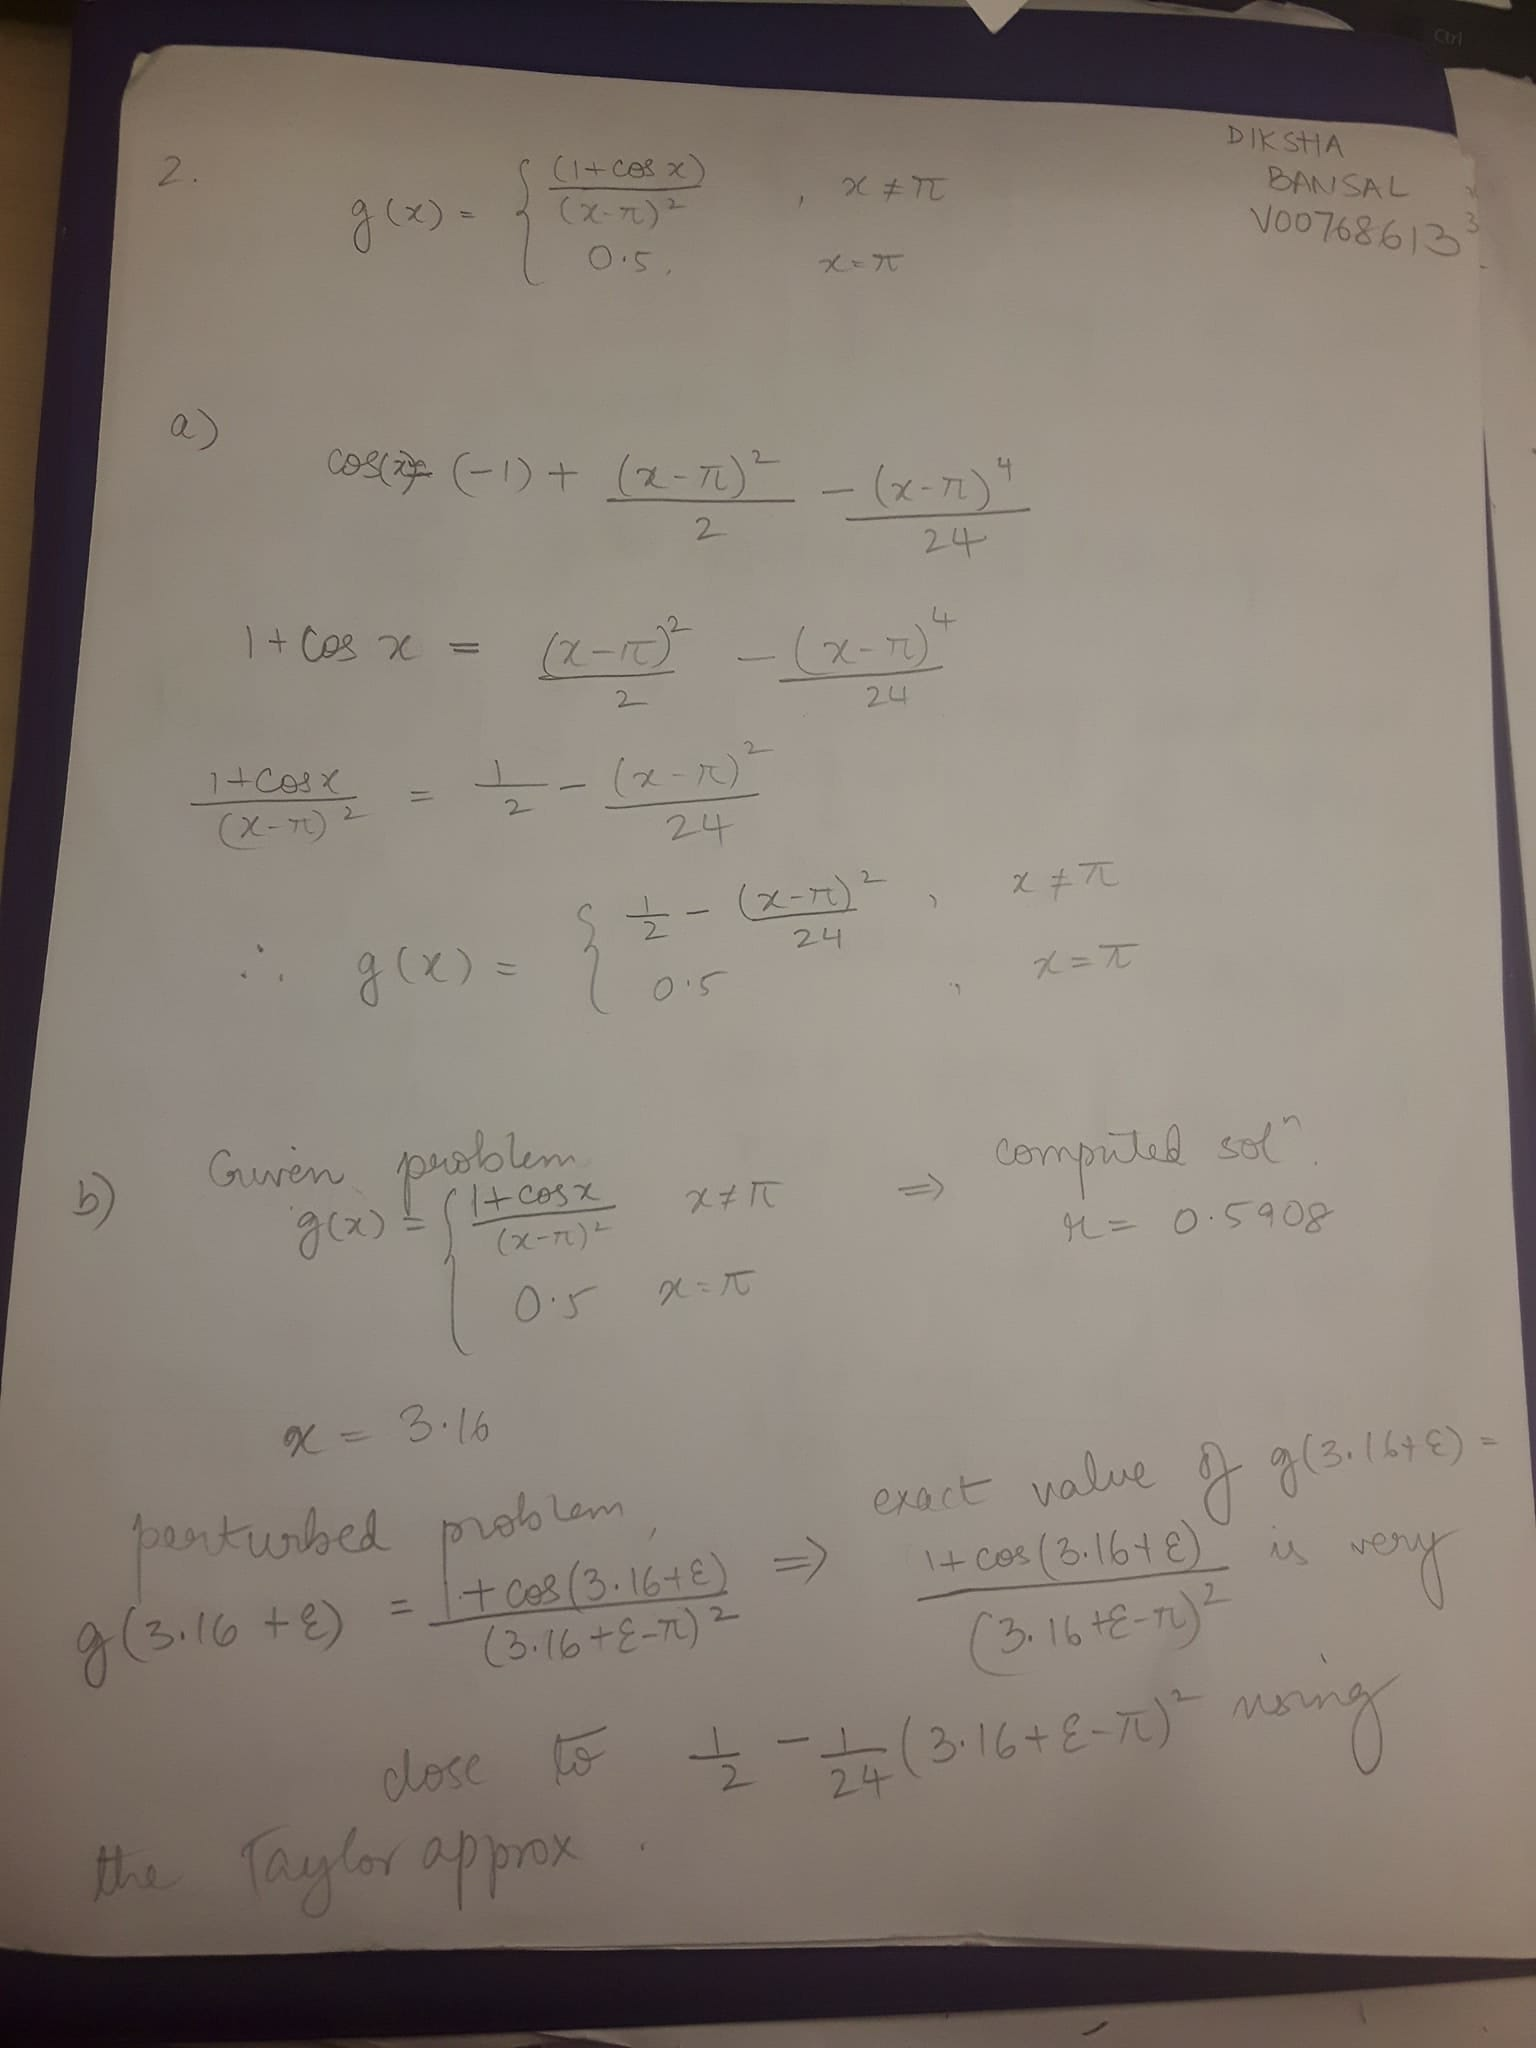 Ctrl
DIKSHA
BANSAL
V00768613
2.
g(x) = { (1+cos x) / (x-π)² , x ≠ π
0.5, x=π
a)
cos(x)= (-1) + (x-π)² / 2 - (x-π)⁴ / 24
1+ Cos x = (x-π)² / 2 - (x-π)⁴ / 24
1+Cosx / (x-π)² = 1/2 - (x-π)² / 24
∴ g(x) = { 1/2 - (x-π)² / 24 , x ≠ π
0.5 , x=π
b) Given problem
g(x) = { 1+cosx / (x-π)² x≠π
0.5 x=π
⇒ computed solⁿ.
r = 0.5908
x = 3.16
perturbed problem,
g(3.16 +ε) = 1+cos(3.16+ε) / (3.16+ε-π)²
⇒ exact value of g(3.16+ε) =
1+cos(3.16+ε) / (3.16+ε-π)² is very
close to 1/2 - 1/24 (3.16+ε-π)² using
the Taylor approx.